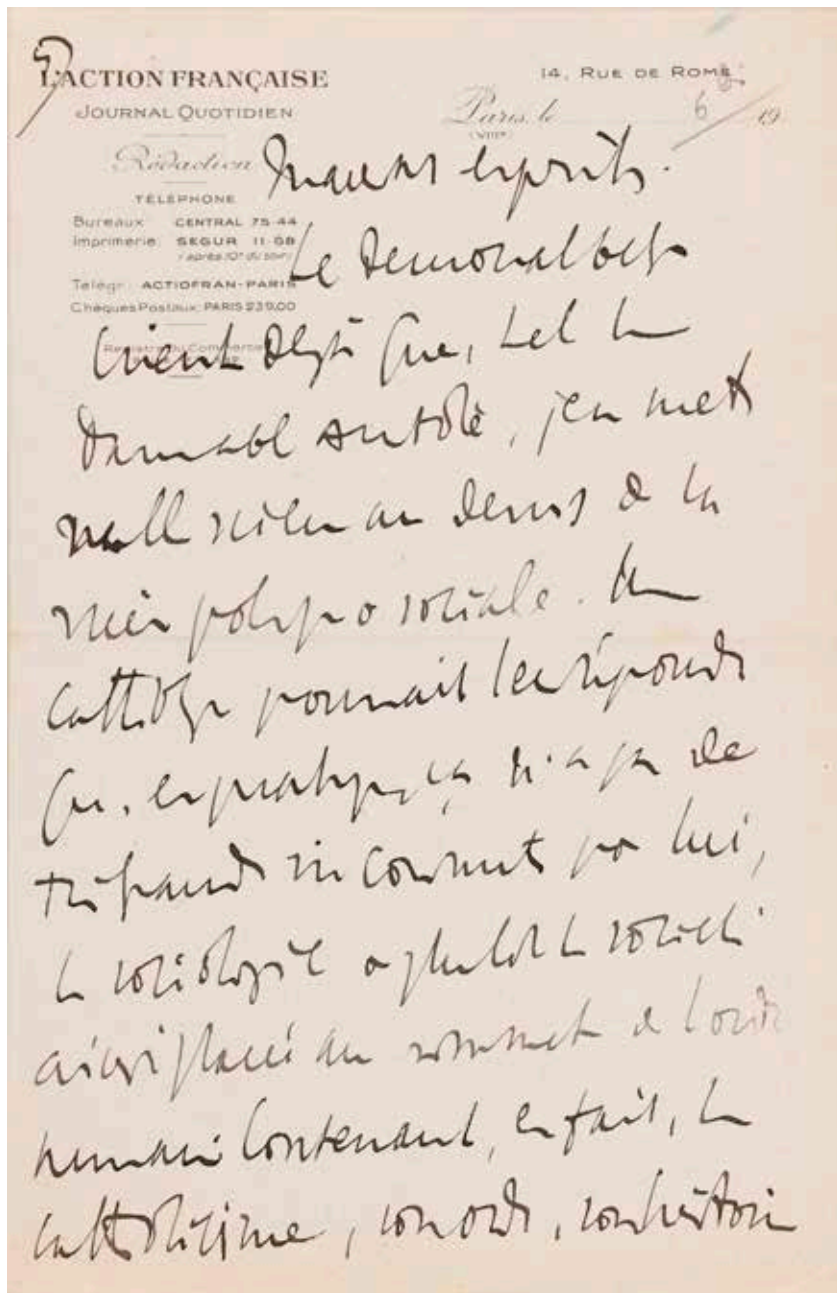 L'ACTION FRANÇAISE
JOURNAL QUOTIDIEN
Rédaction
TÉLÉPHONE
Bureaux: CENTRAL 75-44
Imprimerie: SEGUR 11-68
(après 10h du soir)
Télégr: ACTIOFRAN-PARIS
Chèques Postaux: PARIS 239,00
Registre du Commerce
14, RUE DE ROME
Paris, le 6 19
(VIIIe)
mauvais esprits.
Le
crient déjà que, tel
damnable, j'en mets
au dessus de la
sociale. Un
catholique pourrait leur répondre
que, en pratique, ça n'a pas de
très grands inconvénients pour lui,
la sociologie ou plutôt la société
ainsi placée au sommet de l'ordre
humain contenant, en fait, le
catholicisme, son ordre, son histoire